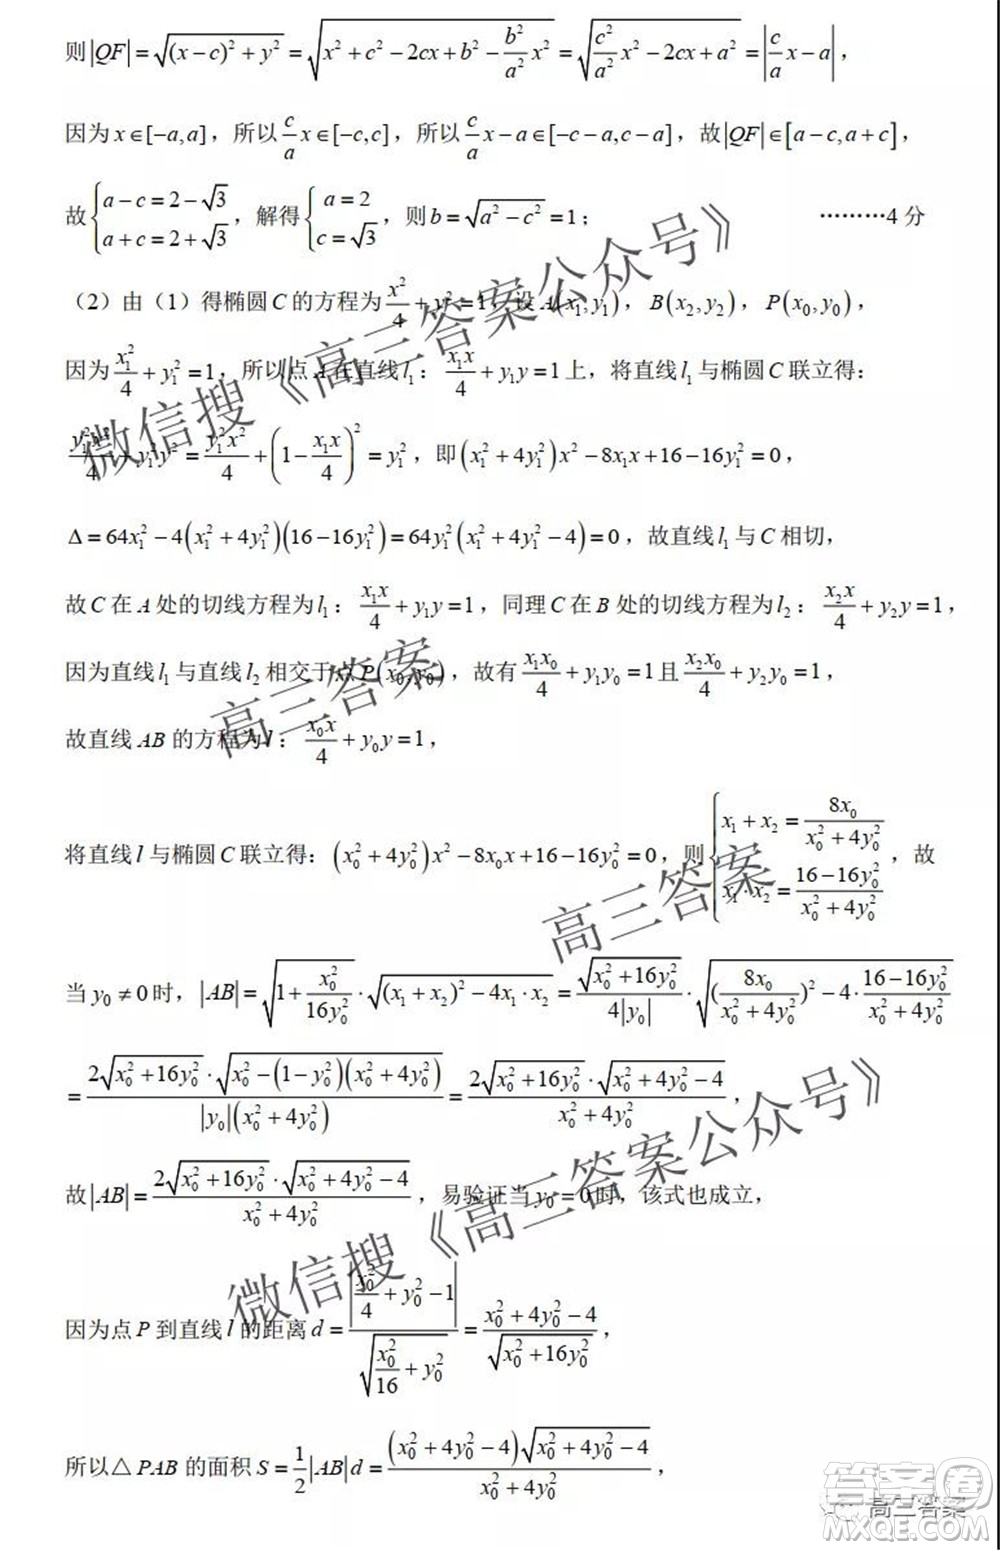 则|QF|=√((x−c)²+y²)=√(x²+c²−2cx+b²−(b²/a²)x²)=√((c²/a²)x²−2cx+a²)=|(c/a)x−a|，
因为x∈[−a,a]，所以(c/a)x∈[−c,c]，所以(c/a)x−a∈[−c−a,c−a]，故|QF|∈[a−c,a+c]，
故{a−c=2−√3, a+c=2+√3，解得{a=2, c=√3，则b=√(a²−c²)=1； ………4分
（2）由（1）得椭圆C的方程为x²/4+y²=1，设A(x₁,y₁)，B(x₂,y₂)，P(x₀,y₀)，
因为x₁²/4+y₁²=1，所以点A在直线l₁：x₁x/4+y₁y=1上，将直线l₁与椭圆C联立得：
y₁²x²/4+y₁²y²=y₁²x²/4+(1−x₁x/4)²=y₁²，即(x₁²+4y₁²)x²−8x₁x+16−16y₁²=0，
Δ=64x₁²−4(x₁²+4y₁²)(16−16y₁²)=64y₁²(x₁²+4y₁²−4)=0，故直线l₁与C相切，
故C在A处的切线方程为l₁：x₁x/4+y₁y=1，同理C在B处的切线方程为l₂：x₂x/4+y₂y=1，
因为直线l₁与直线l₂相交于点P(x₀,y₀)，故有x₁x₀/4+y₁y₀=1且x₂x₀/4+y₂y₀=1，
故直线AB的方程为l：x₀x/4+y₀y=1，
将直线l与椭圆C联立得：(x₀²+4y₀²)x²−8x₀x+16−16y₀²=0，则{x₁+x₂=8x₀/(x₀²+4y₀²), x₁·x₂=(16−16y₀²)/(x₀²+4y₀²)，故
当y₀≠0时，|AB|=√(1+x₀²/(16y₀²))·√((x₁+x₂)²−4x₁·x₂)=√(x₀²+16y₀²)/(4|y₀|)·√((8x₀/(x₀²+4y₀²))²−4·(16−16y₀²)/(x₀²+4y₀²))
=2√(x₀²+16y₀²)·√(x₀²−(1−y₀²)(x₀²+4y₀²))/(|y₀|(x₀²+4y₀²))=2√(x₀²+16y₀²)·√(x₀²+4y₀²−4)/(x₀²+4y₀²)，
故|AB|=2√(x₀²+16y₀²)·√(x₀²+4y₀²−4)/(x₀²+4y₀²)，易验证当y₀=0时，该式也成立，
因为点P到直线l的距离d=|x₀²/4+y₀²−1|/√(x₀²/16+y₀²)=(x₀²+4y₀²−4)/√(x₀²+16y₀²)，
所以△PAB的面积S=(1/2)|AB|d=(x₀²+4y₀²−4)√(x₀²+4y₀²−4)/(x₀²+4y₀²)，
微信搜《高三答案公众号》
高三答案
高三答案
微信搜《高三答案公众号》
高三答案
答案圈
MXQE.COM